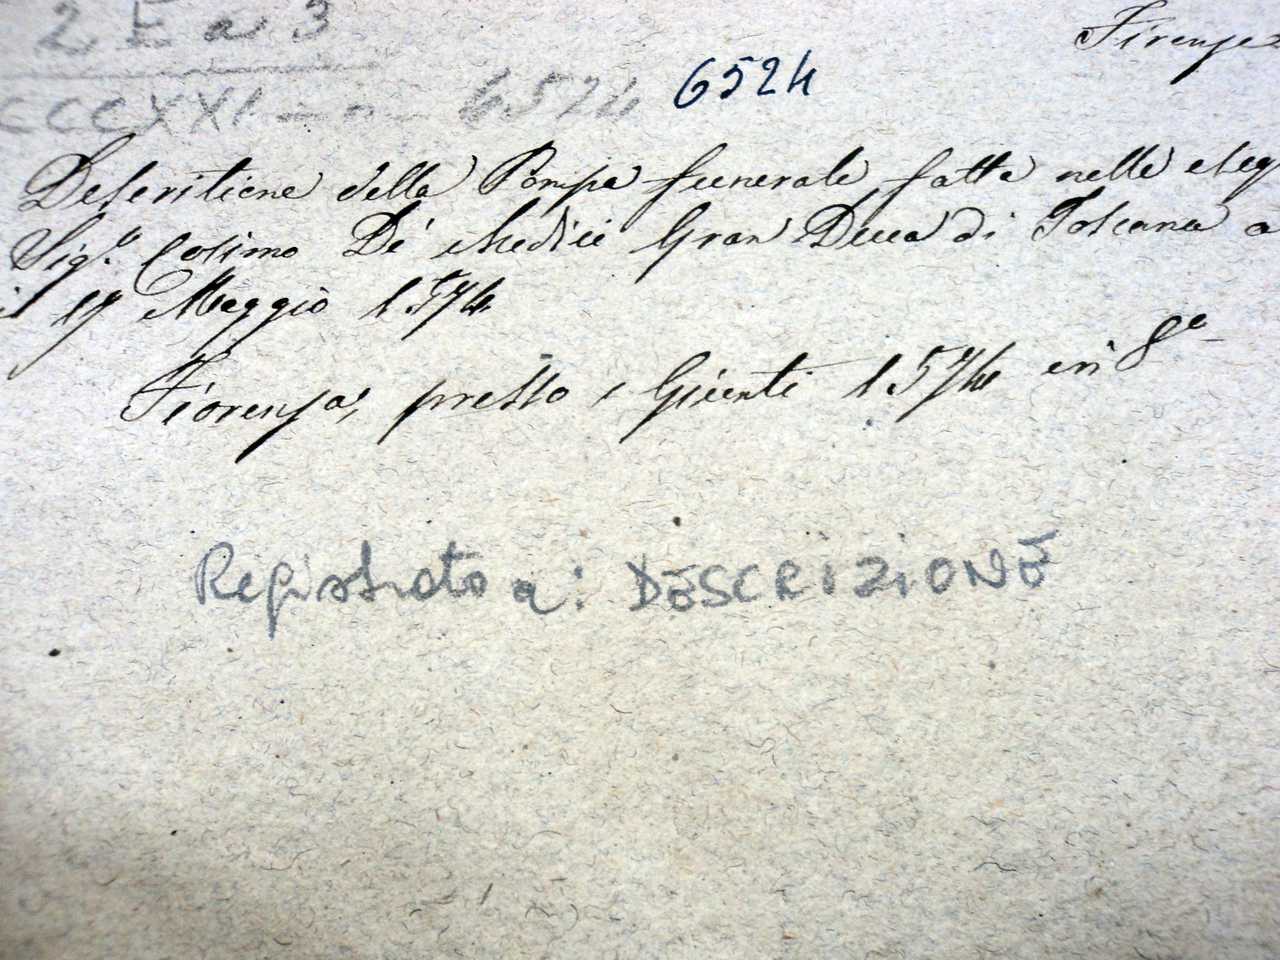 2 E a 3
Firenze
CCCXXI - n - 6524 6524
Descritione della Pompa funerale fatta nelle eseq
Sig.e Cosimo De' Medici Gran Duca di Toscana a
il 17 Maggio 1574
Fiorenza, presso i Giunti 1574 in 8°
Registrato a: DESCRIZIONE